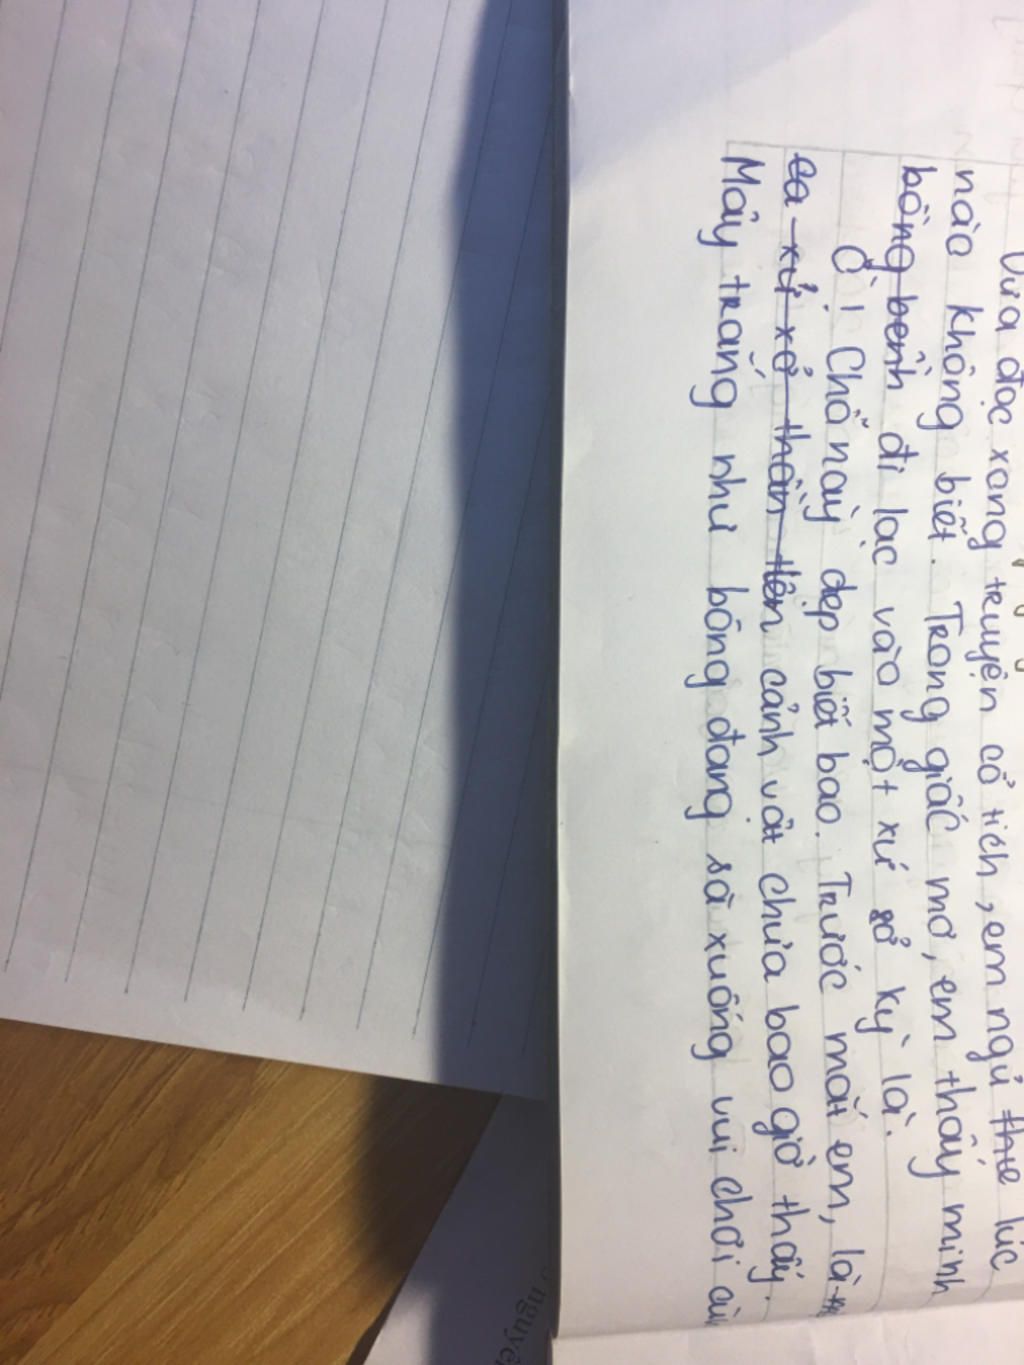 Vừa đọc xong truyện cổ tích, em ngủ thie lúc
nào không biết. Trong giấc mơ, em thấy mình
bồng bềnh đi lạc vào một xứ sở kỳ lạ.
Ơ! Chỗ này đẹp biết bao. Trước mắt em, là
ca xứ xở thần tiên cảnh vật chưa bao giờ thấy.
Mây trắng như bông đang sà xuống vui chơi
nguyên